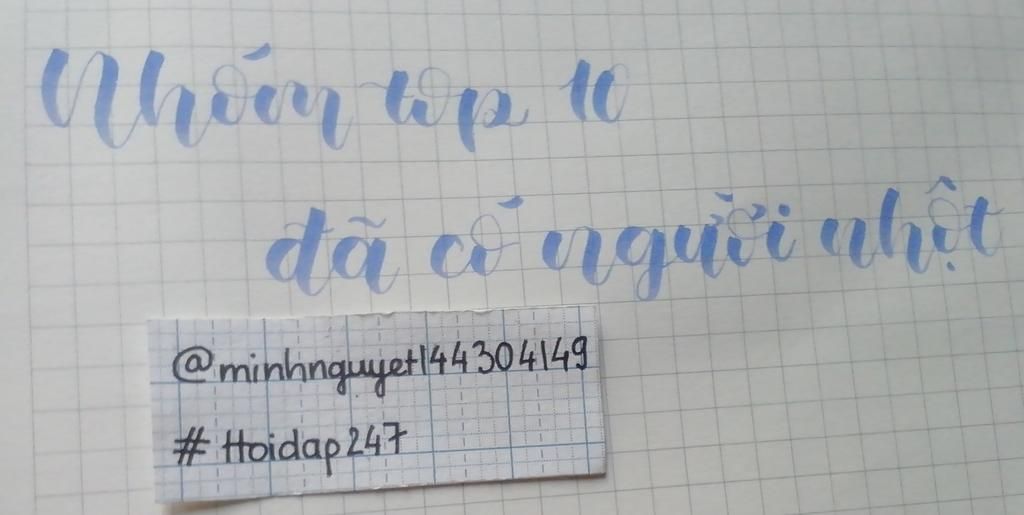 Nhóm top 10
đã có người nhột
@minhnguyet144304149
# Hoidap247